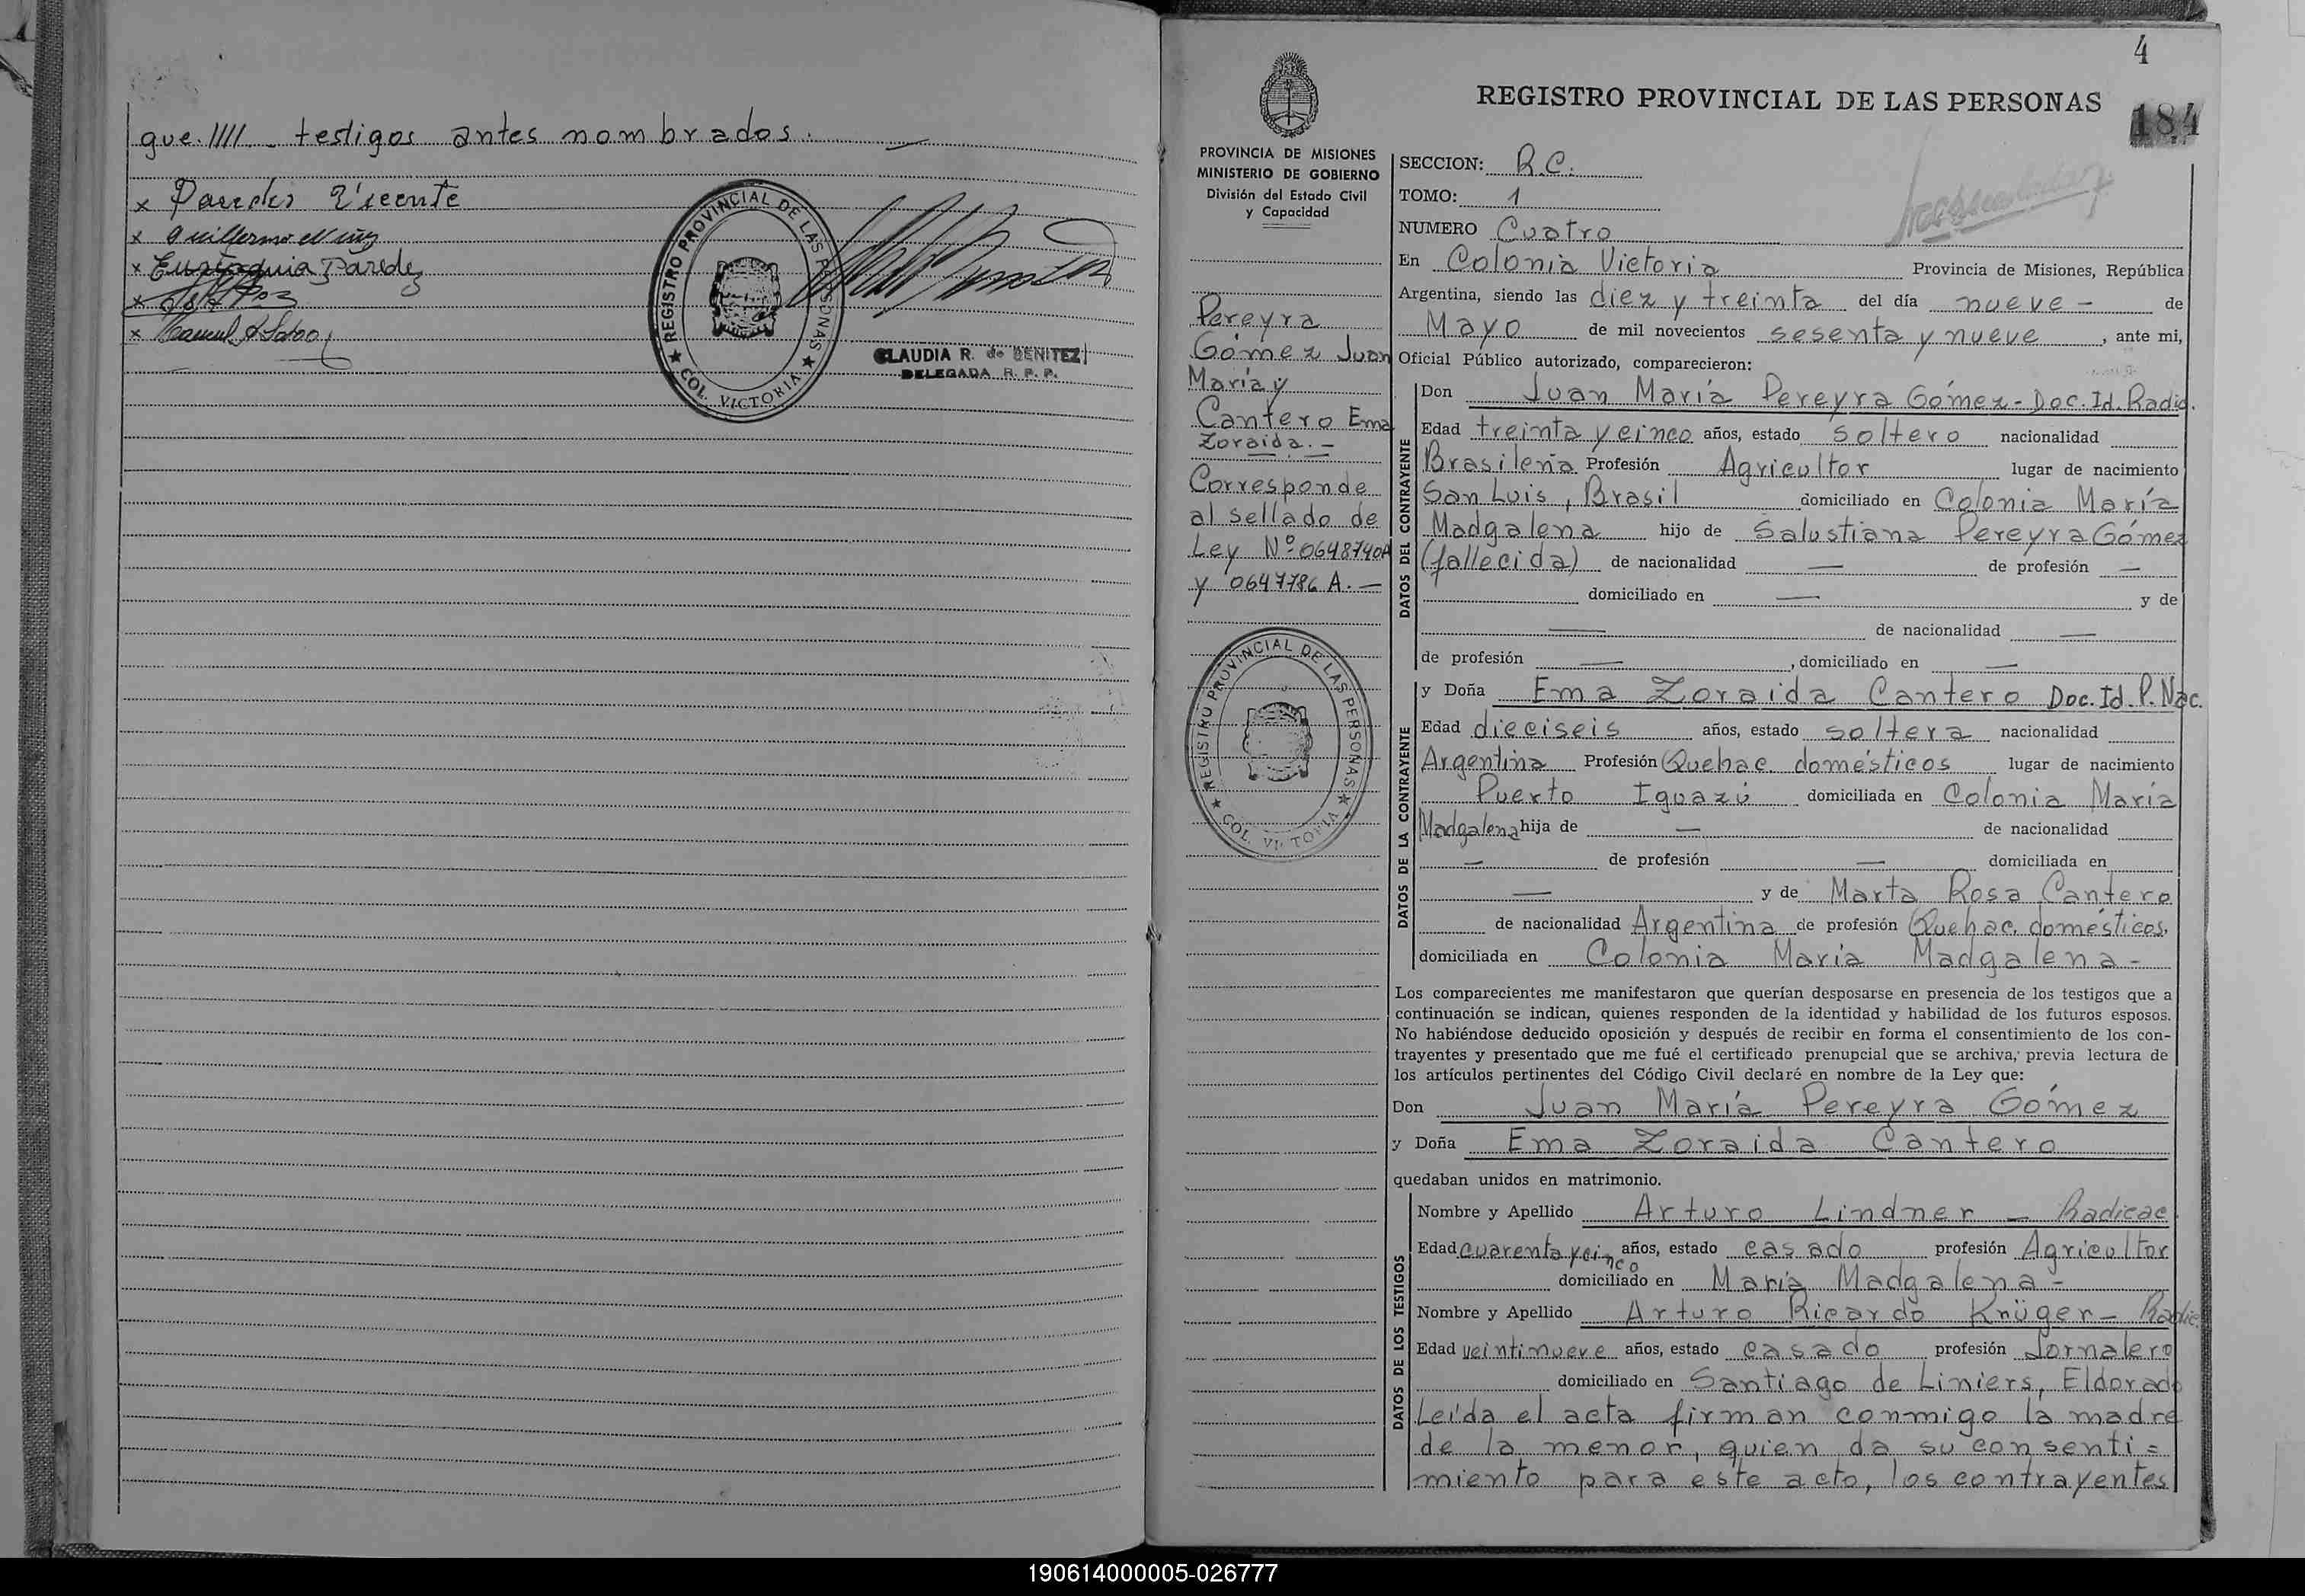 gue.//// testigos antes nombrados.
x Paredes Vicente
x Guillermo
x Eustaquia Paredez
x
x Manuel A
REGISTRO PROVINCIAL DE LAS PERSONAS
★ COL. VICTORIA ★
CLAUDIA R. de BENITEZ
DELEGADA R. P. P.
4
REGISTRO PROVINCIAL DE LAS PERSONAS
184
PROVINCIA DE MISIONES
MINISTERIO DE GOBIERNO
División del Estado Civil
y Capacidad
Pereyra
Gómez Juan
María y
Cantero Ema
Zoraida.-
Corresponde
al sellado de
Ley Nº 0648740A
y 0647786 A.-
REGISTRO PROVINCIAL DE LAS PERSONAS
★ COL. VICTORIA ★
SECCION: R.C.
TOMO: 1
NUMERO Cuatro
En Colonia Victoria Provincia de Misiones, República
Argentina, siendo las diez y treinta del día nueve - de
Mayo de mil novecientos sesenta y nueve, ante mi,
Oficial Público autorizado, comparecieron:
DATOS DEL CONTRAYENTE
Don Juan María Pereyra Gómez - Doc. Id. Radic.
Edad treinta y cinco años, estado soltero nacionalidad
Brasileña Profesión Agricultor lugar de nacimiento
San Luis, Brasil domiciliado en Colonia María
Madgalena hijo de Salustiana Pereyra Gómez
(fallecida) de nacionalidad — de profesión —
domiciliado en — y de
— de nacionalidad —
de profesión —, domiciliado en —
DATOS DE LA CONTRAYENTE
y Doña Ema Zoraida Cantero Doc. Id. P. Nac.
Edad dieciseis años, estado soltera nacionalidad
Argentina Profesión Quehac. domésticos lugar de nacimiento
Puerto Iguazú domiciliada en Colonia María
Madgalena hija de — de nacionalidad
— de profesión — domiciliada en
— y de Marta Rosa Cantero
de nacionalidad Argentina de profesión Quehac. domésticos,
domiciliada en Colonia María Madgalena -
Los comparecientes me manifestaron que querían desposarse en presencia de los testigos que a
continuación se indican, quienes responden de la identidad y habilidad de los futuros esposos.
No habiéndose deducido oposición y después de recibir en forma el consentimiento de los con-
trayentes y presentado que me fué el certificado prenupcial que se archiva, previa lectura de
los artículos pertinentes del Código Civil declaré en nombre de la Ley que:
Don Juan María Pereyra Gómez
y Doña Ema Zoraida Cantero
quedaban unidos en matrimonio.
DATOS DE LOS TESTIGOS
Nombre y Apellido Arturo Lindner — Radicac
Edad cuarenta y cinco años, estado casado profesión Agricultor
domiciliado en María Madgalena -
Nombre y Apellido Arturo Ricardo Krüger - Radic.
Edad veintinueve años, estado casado profesión Jornalero
domiciliado en Santiago de Liniers, Eldorado
Leída el acta firman conmigo la madre
de la menor, quien da su consenti=
miento para este acto, los contrayentes
190614000005-026777